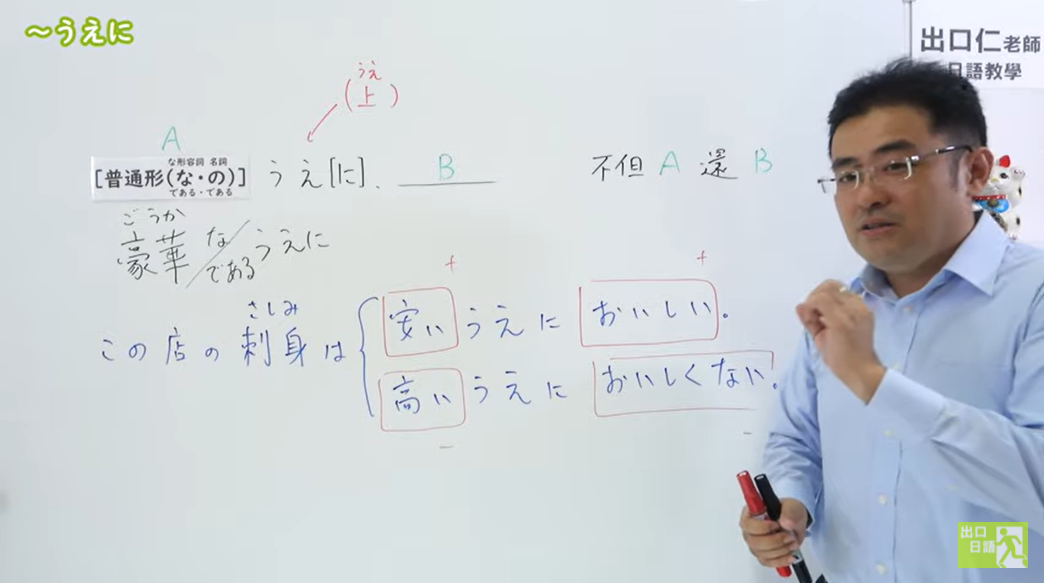 ～うえに
出口仁老師
日語教學
うえ
(上)
A
な形容詞 名詞
[普通形(な・の)] うえ[に]、 B
である・である
不但 A 還 B
ごうか
豪華 な/である うえに
+ +
さしみ
この店の刺身は
安いうえにおいしい。
高いうえにおいしくない。
− −
出口
日語